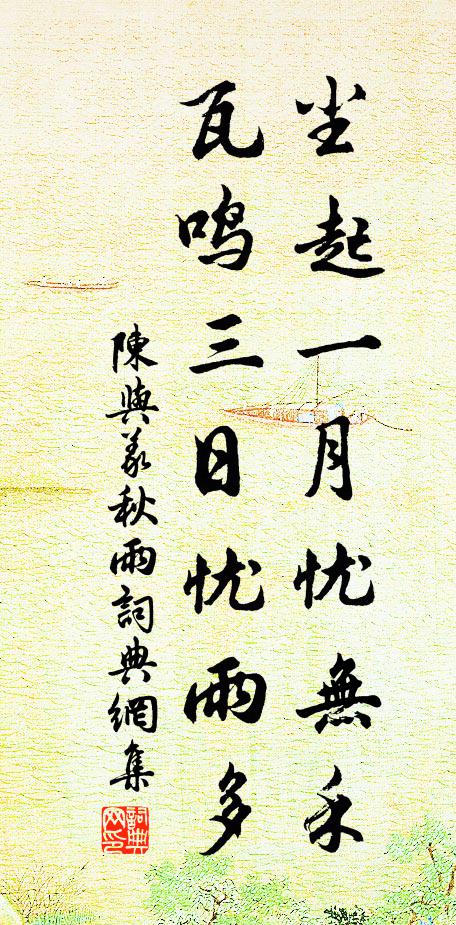 尘起一月忧無禾
瓦鸣三日忧雨多
陳與義秋雨詞典網集
詞典
网印